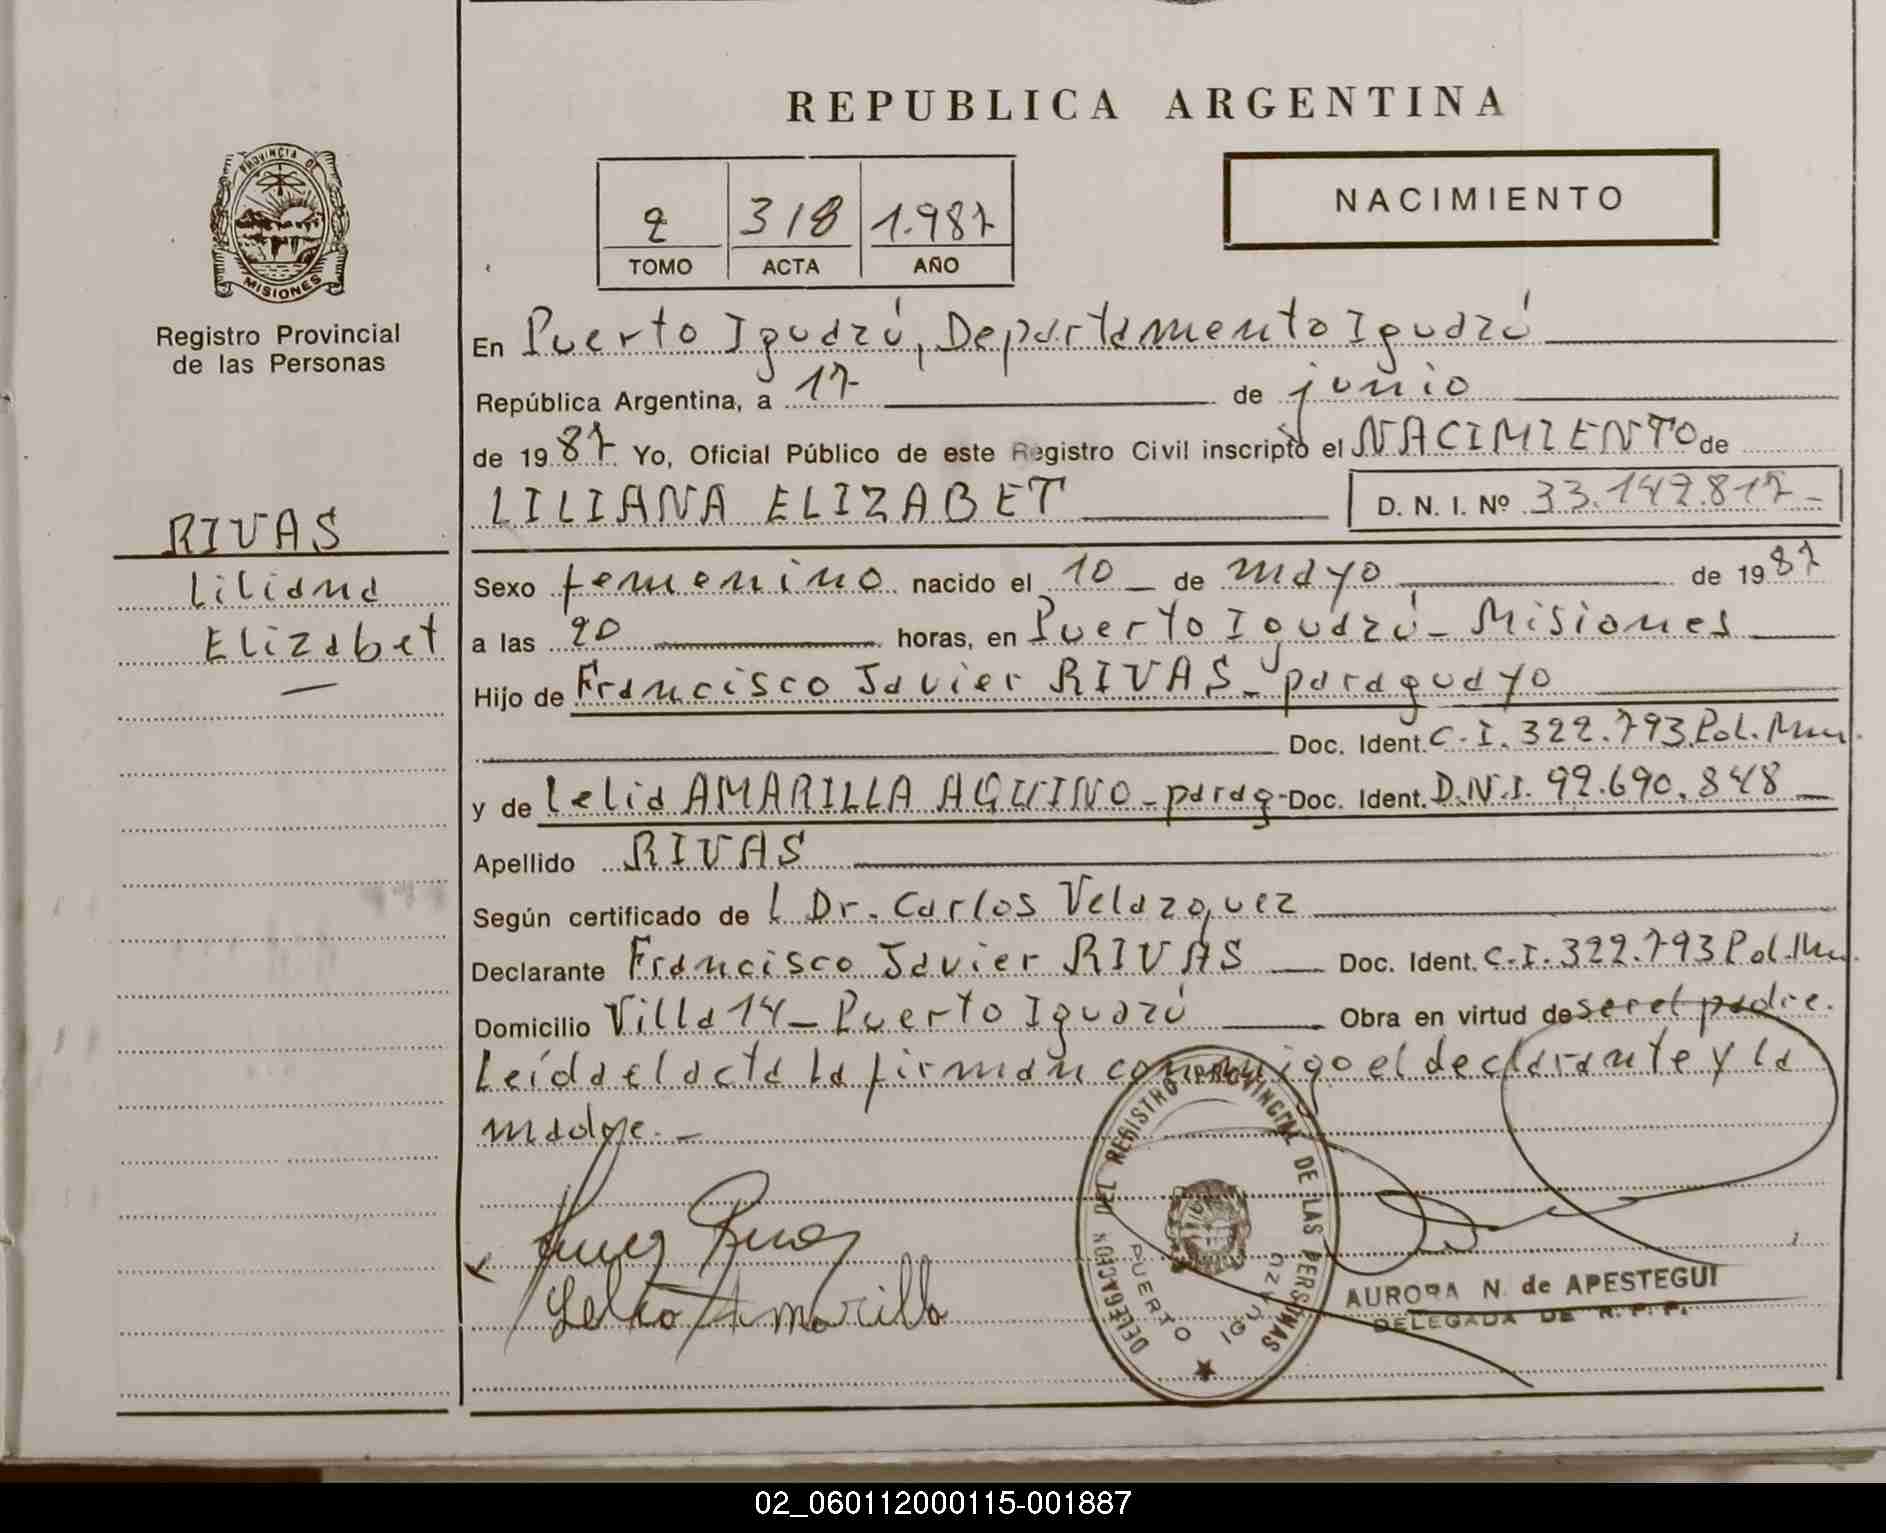 REPUBLICA ARGENTINA
PROVINCIA DE
MISIONES
Registro Provincial
de las Personas
2 318 1.987
TOMO ACTA AÑO
NACIMIENTO
En Puerto Iguazú, Departamento Iguazú
República Argentina, a 17 de junio
de 1987 Yo, Oficial Público de este Registro Civil inscripto el NACIMIENTO de
LILIANA ELIZABET D. N. I. Nº 33.142.817-
RIVAS
Liliana
Elizabet
Sexo femenino nacido el 10 de mayo de 1987
a las 20 horas, en Puerto Iguazú - Misiones
Hijo de Francisco Javier RIVAS - paraguayo
Doc. Ident. C.I. 322.793 Pol. Mnes.
y de Lelia AMARILLA AQUINO - parag- Doc. Ident. D.N.I. 92.690.848
Apellido RIVAS
Según certificado de l Dr. Carlos Velazquez
Declarante Francisco Javier RIVAS Doc. Ident. C.I. 322.793 Pol.
Domicilio Villa 14 - Puerto Iguazú Obra en virtud de ser el padre.
Leída el acta la firman conmigo el declarante y la
madre. -
Lelia Amarilla
DELEGACION DEL REGISTRO PROVINCIAL DE LAS PERSONAS
PUERTO IGUAZU
AURORA N. de APESTEGUI
DELEGADA DE R. P. P.
02_060112000115-001887